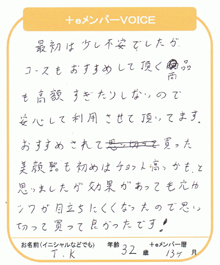 +eメンバーVOICE
最初は少し不安でしたが
コースもおすすめして頂く商品
も高額すぎたりしないので
安心して利用させて頂いてます。
おすすめされて思い切って買った
美顔器も初めはチョット高いかも、と
思いましたが効果があっても毛穴や
シワが目立ちにくくなったので思い
切って買って良かったです!
お名前(イニシャルなどでも) 年齢 +eメンバー暦
T.K 32歳 13ヶ月